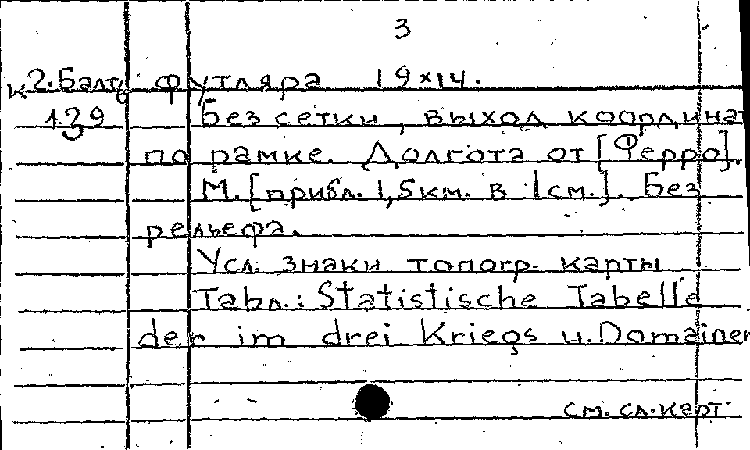 3
к 2. Балт футляра 19×14.
1.39 Без сетки, выход координат
по рамке. Долгота от [Ферро].
М. [прибл. 1,5км. в 1см.]. Без
рельефа.
Усл. знаки топогр. карты
Табл.: Statistische Tabelle
der im drei Kriegs u. Domainen
см. сл. карт.